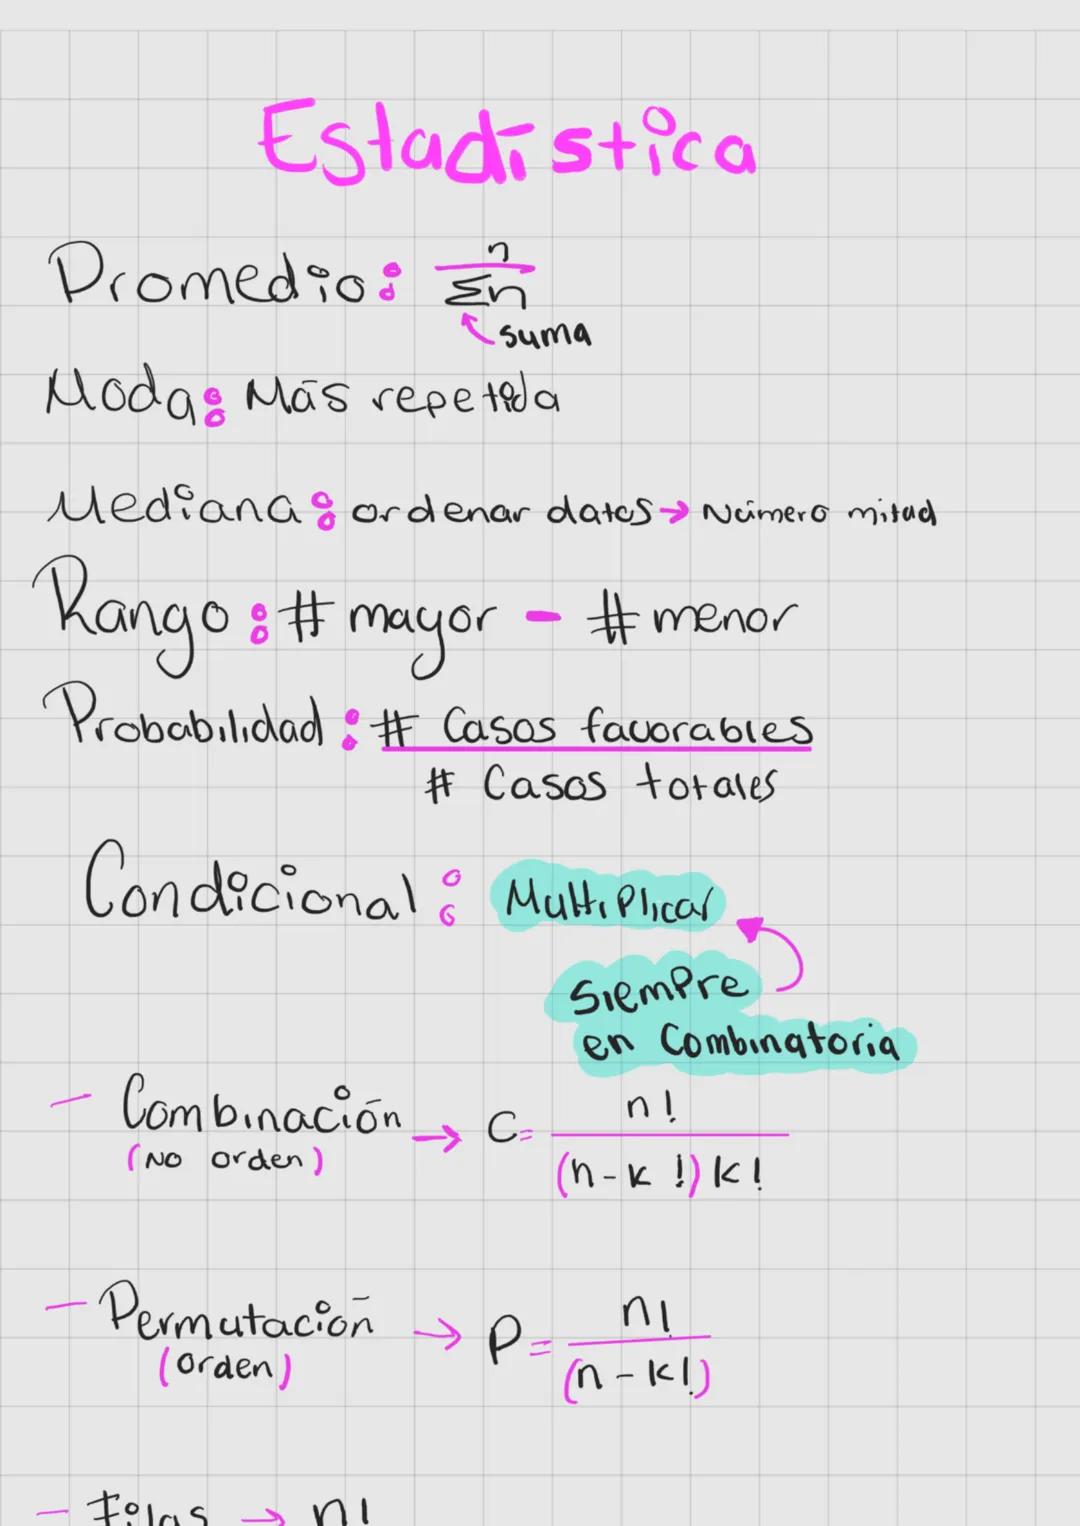 Estadística
Promedio: n
Σn
suma
Moda: Más repetida
Mediana: ordenar datos → Número mitad
Rango: # mayor - # menor
Probabilidad: # Casos favorables
# Casos totales
Condicional: Multiplicar
Siempre
en Combinatoria
- Combinación → C= n!
(No orden) (n-k!) k!
- Permutación → P= n!
(orden) (n-k!)
- Filas → n!